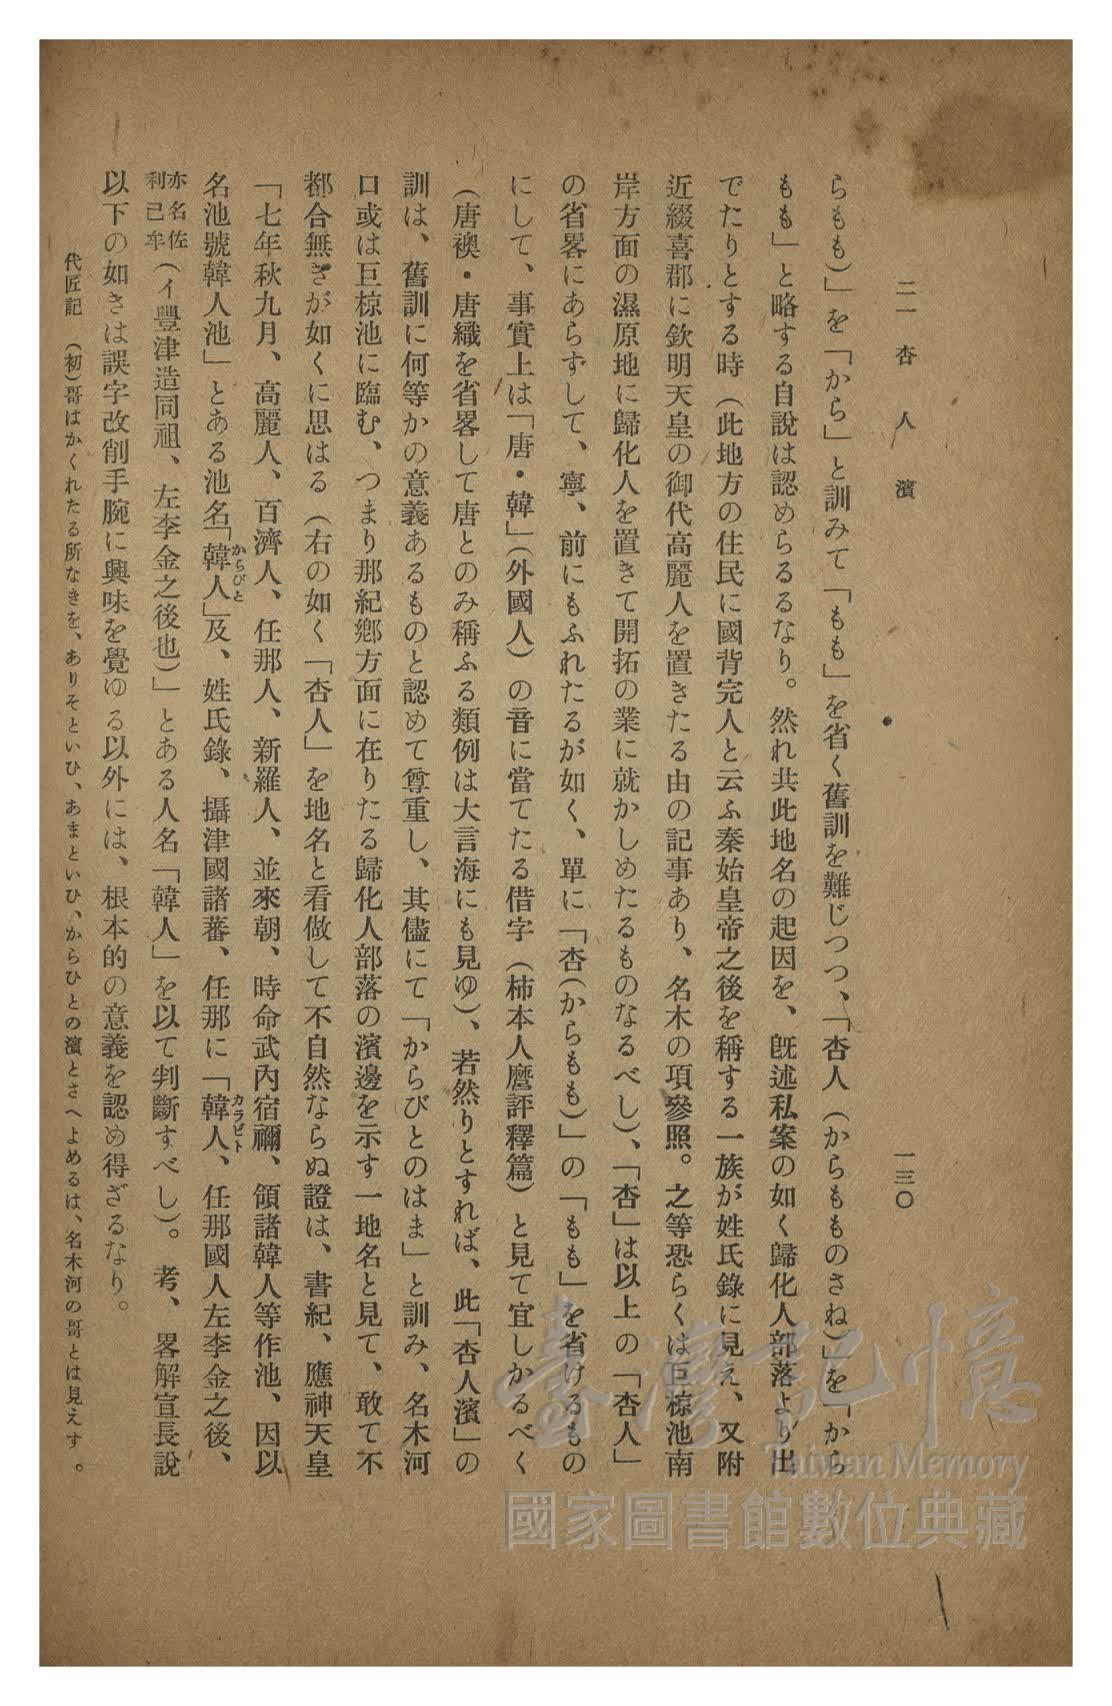 二一　杏人濱　一三〇
らもも）」を「から」と訓みて「もも」を省く舊訓を難じつつ、「杏人（からもものさね）」を「から
もも」と略する自說は認めらるるなり。然れ共此地名の起因を、旣述私案の如く歸化人部落より出
でたりとする時（此地方の住民に國背完人と云ふ秦始皇帝之後を稱する一族が姓氏錄に見え、又附
近綴喜郡に欽明天皇の御代高麗人を置きたる由の記事あり、名木の項參照。之等恐らくは巨椋池南
岸方面の濕原地に歸化人を置きて開拓の業に就かしめたるものなるべし）、「杏」は以上の「杏人」
の省畧にあらずして、寧、前にもふれたるが如く、單に「杏（からもも）」の「もも」を省けるもの
にして、事實上は「唐・韓」（外國人）の音に當てたる借字（柿本人麿評釋篇）と見て宜しかるべく
（唐襖・唐織を省畧して唐とのみ稱ふる類例は大言海にも見ゆ）、若然りとすれば、此「杏人濱」の
訓は、舊訓に何等かの意義あるものと認めて尊重し、其儘にて「からびとのはま」と訓み、名木河
口或は巨椋池に臨む、つまり那紀鄕方面に在りたる歸化人部落の濱邊を示す一地名と見て、敢て不
都合無きが如くに思はる（右の如く「杏人」を地名と看做して不自然ならぬ證は、書紀、應神天皇
「七年秋九月、高麗人、百濟人、任那人、新羅人、並來朝、時命武內宿禰、領諸韓人等作池、因以
名池號韓人池」とある池名「韓人」及、姓氏錄、攝津國諸蕃、任那に「韓人、任那國人左李金之後、
からびと
カラビト
亦名佐
利己牟
（イ豐津造同祖、左李金之後也）」とある人名「韓人」を以て判斷すべし）。考、畧解宣長說
以下の如きは誤字改削手腕に興味を覺ゆる以外には、根本的の意義を認め得ざるなり。
代匠記　（初）哥はかくれたる所なきを、ありそといひ、あまといひ、からひとの濱とさへよめるは、名木河の哥とは見えす。
臺灣記憶
Taiwan Memory
國家圖書館數位典藏